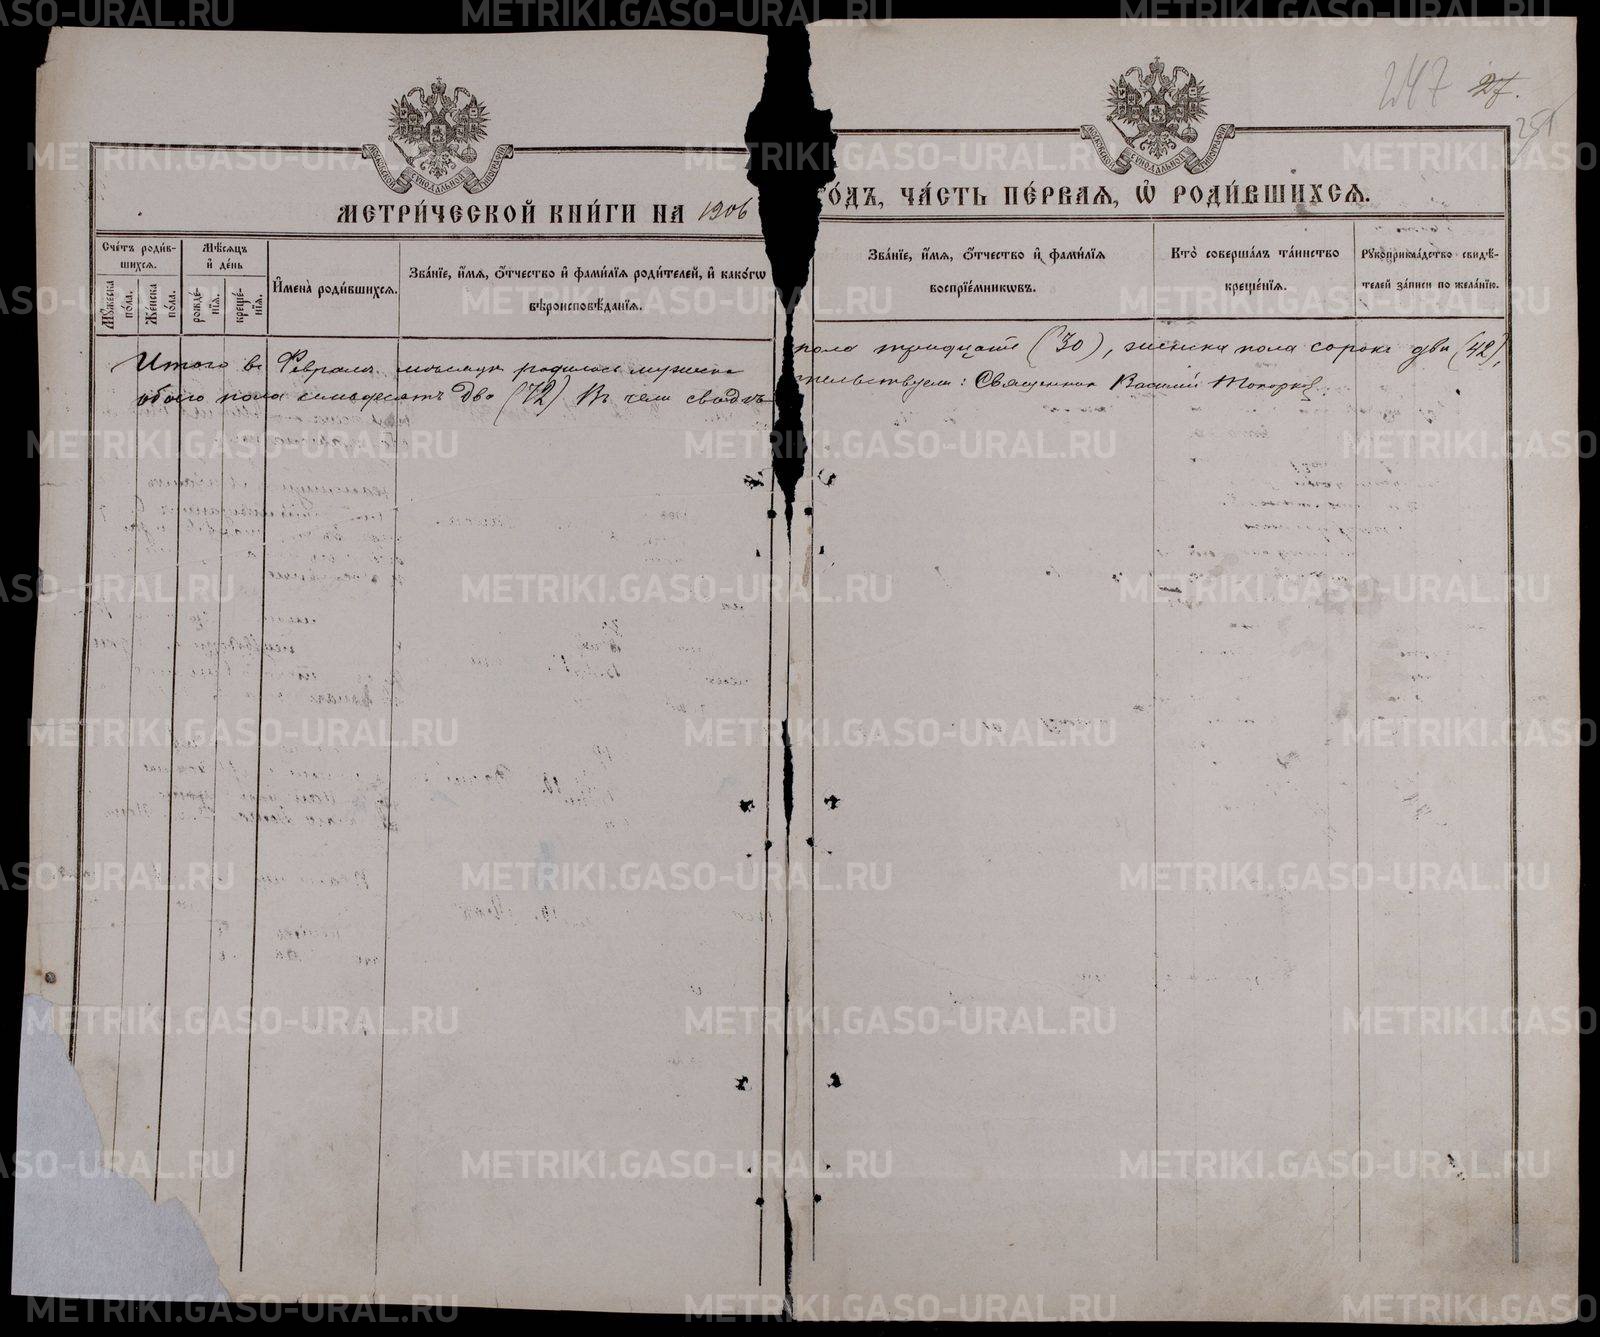 247 27.
251
МОСКОВСКОЙ СѴНОДАЛЬНОЙ ТИПОГРАФІИ
МОСКОВСКОЙ СѴНОДАЛЬНОЙ ТИПОГРАФІИ
МЕТРИ́ЧЕСКОЙ КНИ́ГИ НА 1906
ГО́ДЪ, ЧА́СТЬ ПЕ́РВАЯ, Ѽ РОДИ́ВШИХСЯ.
Сче́тъ роди́в-
шихся.
Му́жеска по́ла.
Же́нска по́ла.
Мѣ́сяцъ
и҆ де́нь
рожде́-
нїя.
креще́-
нїя.
И҆мена̀ роди́вшихся.
Зва́нїе, и҆́мя, ѻ҆́тчество и҆ фами́лїя роди́телей, и҆ како́гѡ
вѣроисповѣ́данїя.
Зва́нїе, и҆́мя, ѻ҆́тчество и҆ фами́лїя
воспрїе́мникѡвъ.
Кто̀ соверша́лъ та́инство
креще́нїя.
Рукоприкла́дство свидѣ́-
телей за́писи по жела́нїю.
Итого въ Февралѣ мѣсяцѣ родилось мужеска
пола тридцать (30), женска пола сорокъ два (42),
обоего пола семьдесятъ два (72) Въ чемъ свидѣ-
тельствуемъ: Священникъ Василій Топорковъ.
METRIKI.GASO-URAL.RU